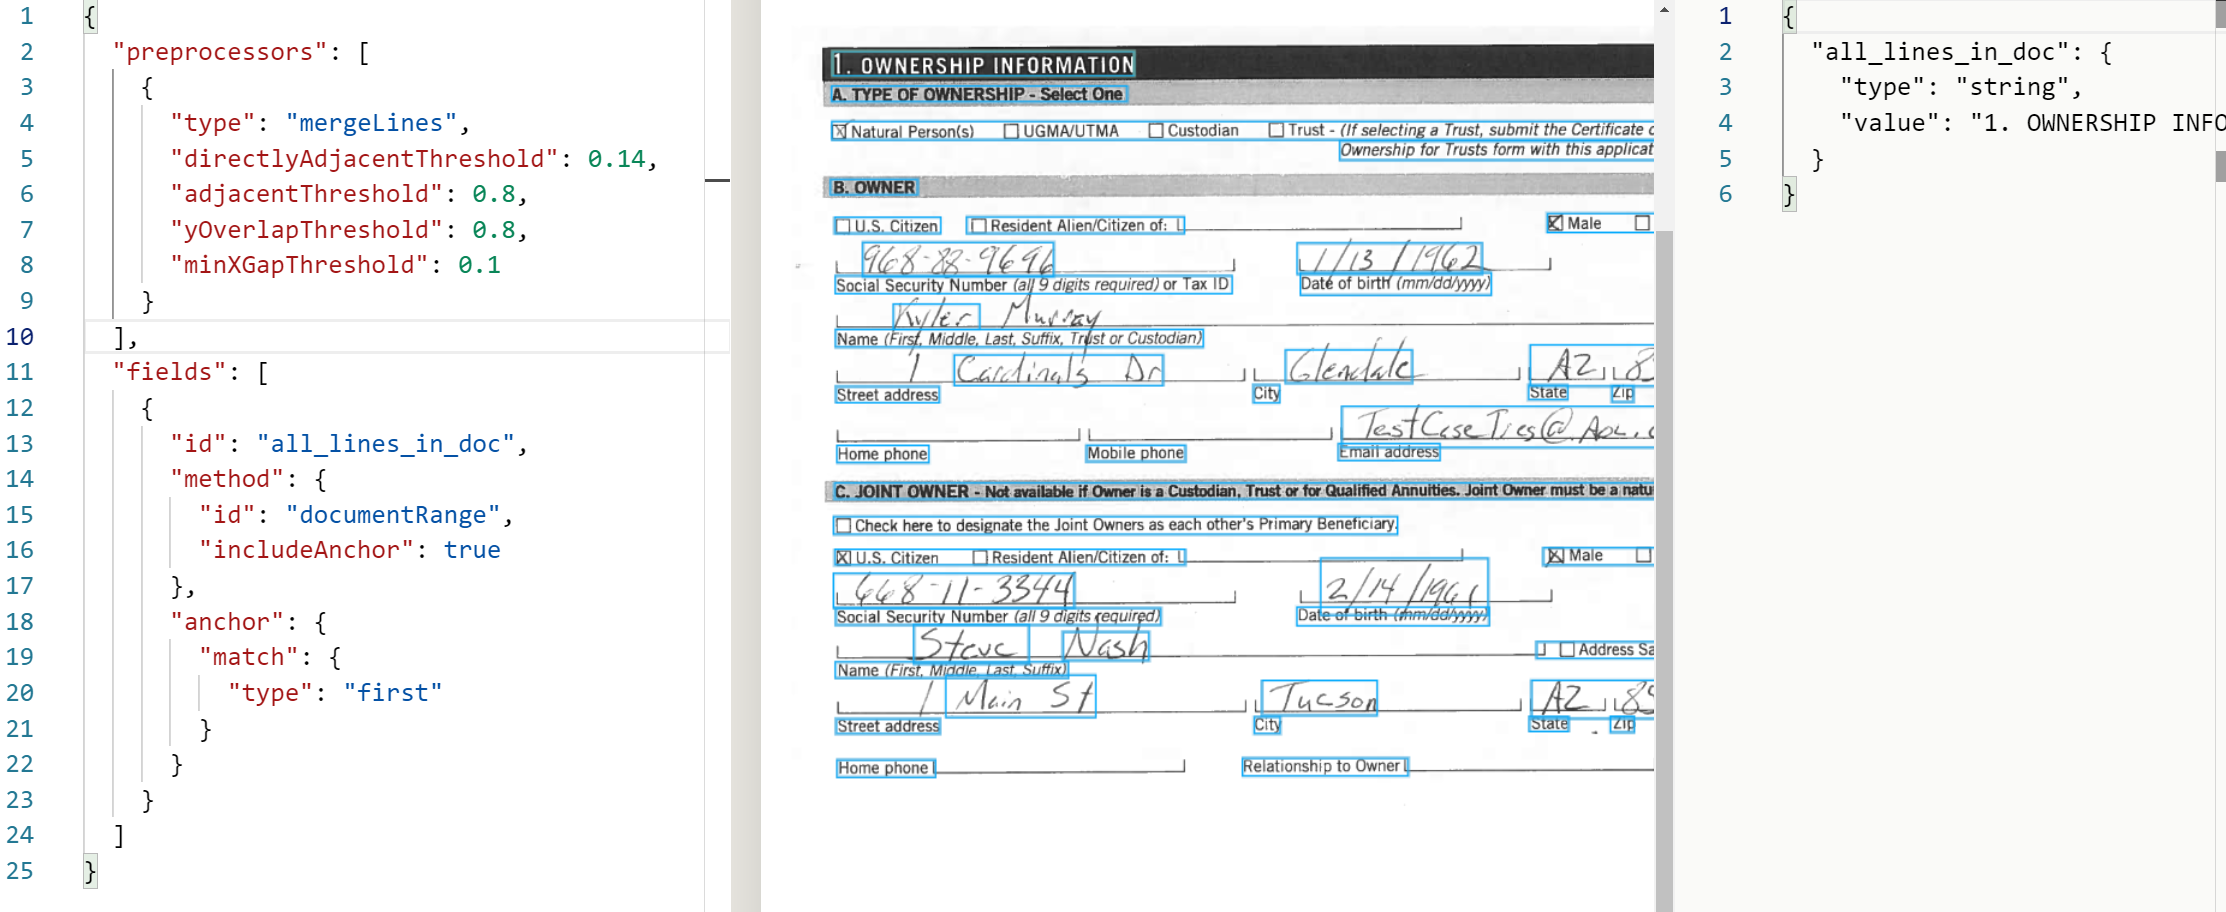 1 {
2 "preprocessors": [
3 {
4 "type": "mergeLines",
5 "directlyAdjacentThreshold": 0.14,
6 "adjacentThreshold": 0.8,
7 "yOverlapThreshold": 0.8,
8 "minXGapThreshold": 0.1
9 }
10 ],
11 "fields": [
12 {
13 "id": "all_lines_in_doc",
14 "method": {
15 "id": "documentRange",
16 "includeAnchor": true
17 },
18 "anchor": {
19 "match": {
20 "type": "first"
21 }
22 }
23 }
24 ]
25 }
1. OWNERSHIP INFORMATION
A. TYPE OF OWNERSHIP - Select One
Natural Person(s) UGMA/UTMA Custodian Trust - (If selecting a Trust, submit the Certificate
Ownership for Trusts form with this applicat
B. OWNER
U.S. Citizen Resident Alien/Citizen of: Male
968-88-9696 1/13/1962
Social Security Number (all 9 digits required) or Tax ID Date of birth (mm/dd/yyyy)
Kyler Murray
Name (First, Middle, Last, Suffix, Trust or Custodian)
1 Cardinals Dr Glendale AZ 8
Street address City State Zip
Home phone Mobile phone Email address
C. JOINT OWNER - Not available if Owner is a Custodian, Trust or for Qualified Annuities. Joint Owner must be a natu
Check here to designate the Joint Owners as each other's Primary Beneficiary.
U.S. Citizen Resident Alien/Citizen of: Male
668-11-3344 2/14/1961
Social Security Number (all 9 digits required) Date of birth (mm/dd/yyyy)
Steve Nash Address Sa
Name (First, Middle, Last, Suffix)
1 Main St Tucson AZ 85
Street address City State Zip
Home phone Relationship to Owner
1 {
2 "all_lines_in_doc": {
3 "type": "string",
4 "value": "1. OWNERSHIP INFO
5 }
6 }